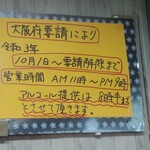 大阪府要請により
令和3年
10月1日〜要請解除まで
営業時間 AM11時〜PM9時
アルコール提供は 8時半まで
とさせて頂きます。